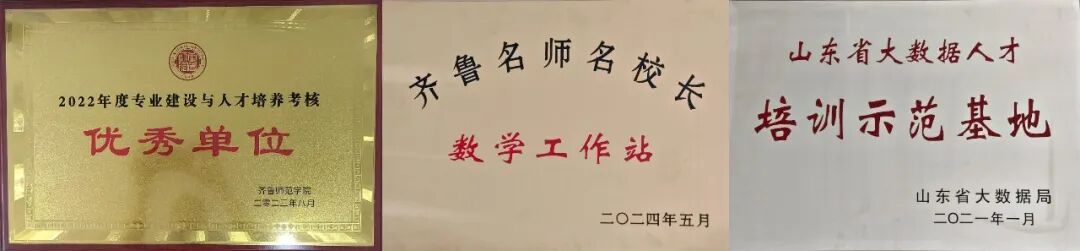 2022年度专业建设与人才培养考核
优秀单位
齐鲁师范学院
二〇二二年八月
齐鲁名师名校长
数学工作站
二〇二四年五月
山东省大数据人才
培训示范基地
山东省大数据局
二〇二一年一月